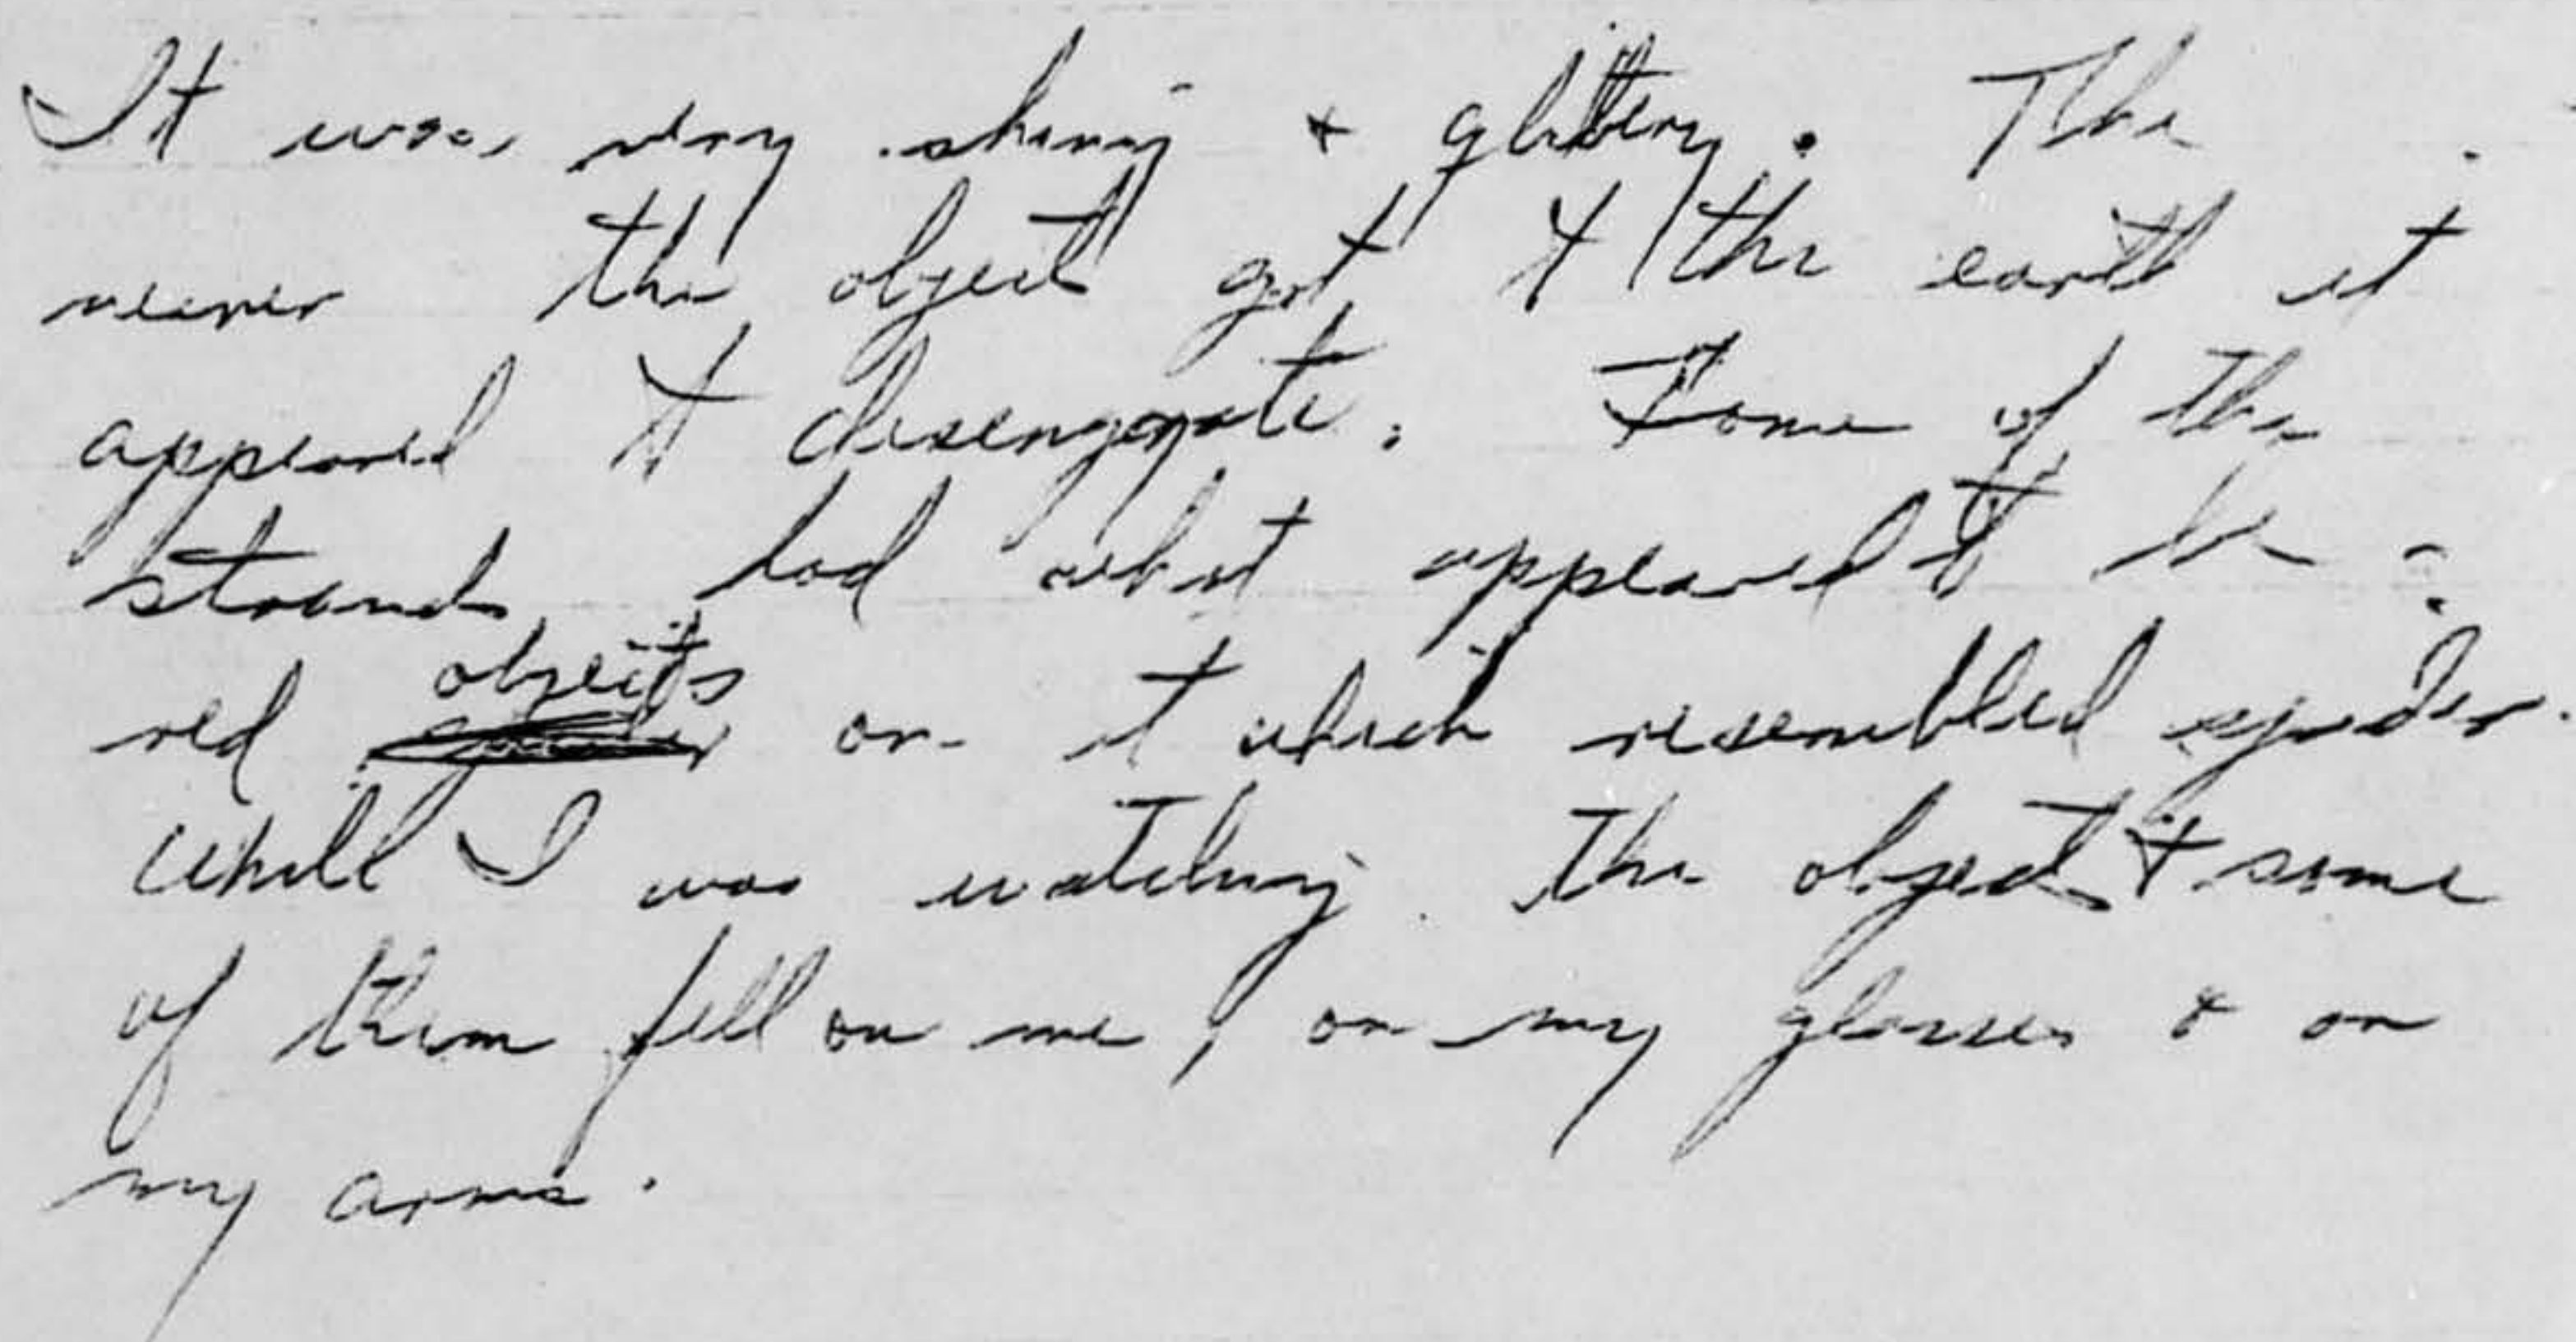 It was very shiny & glittery. The
nearer the object got to the earth it
appeared to disengograte. Some of the
strands had what appeared to be
red objects on it which resembled spider.
While I was watching the object & some
of them fell on me, on my glasses & on
my arms.